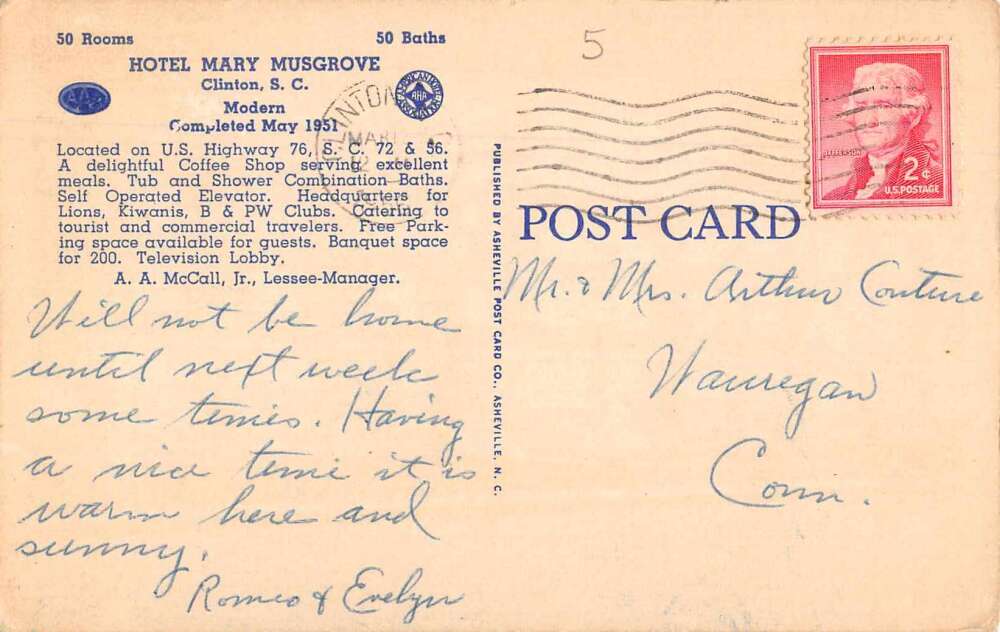 50 Rooms 50 Baths
HOTEL MARY MUSGROVE
Clinton, S. C.
AAA
AMERICAN HOTEL ASSOCIATION
AHA
Modern
Completed May 1951
Located on U.S. Highway 76, S. C. 72 & 56.
A delightful Coffee Shop serving excellent
meals. Tub and Shower Combination Baths.
Self Operated Elevator. Headquarters for
Lions, Kiwanis, B & PW Clubs. Catering to
tourist and commercial travelers. Free Park-
ing space available for guests. Banquet space
for 200. Television Lobby.
A. A. McCall, Jr., Lessee-Manager.
Will not be home
until next week
some times. Having
a nice time it is
warm here and
sunny.
Romeo & Evelyn
PUBLISHED BY ASHEVILLE POST CARD CO., ASHEVILLE, N. C.
5
CLINTON
MAR
12
JEFFERSON
2¢
U.S. POSTAGE
POST CARD
Mr. & Mrs. Arthur Couture
Wauregan
Conn.